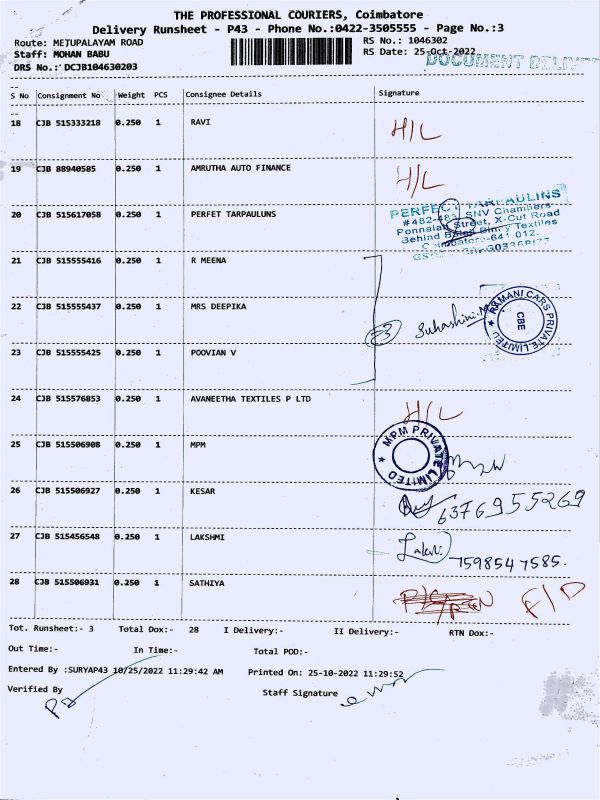 THE PROFESSIONAL COURIERS, Coimbatore
Delivery Runsheet - P43 - Phone No.:0422-3505555 - Page No.:3
Route: METUPALAYAM ROAD RS No.: 1046302
Staff: MOHAN BABU RS Date: 25-Oct-2022
DOCUMENT DELIVE
DRS No.: DCJB104630203
S No Consignment No Weight PCS Consignee Details Signature
18 CJB 515333218 0.250 1 RAVI H/L
19 CJB 88940585 0.250 1 AMRUTHA AUTO FINANCE H/L
PERFECT TARPAULINS
#482-483, SNV Chambers
20 CJB 515617058 0.250 1 PERFET TARPAULUNS
Ponnaian Street, X-Cut Road
Behind Textiles
Coimbatore-641 012.
21 CJB 515555416 0.250 1 R MEENA
22 CJB 515555437 0.250 1 MRS DEEPIKA
3 Suhashini RAMANI CARS PRIVATE LIMITED CBE
23 CJB 515555425 0.250 1 POOVIAN V
24 CJB 515576853 0.250 1 AVANEETHA TEXTILES P LTD H/L
25 CJB 515506908 0.250 1 MPM MPM PRIVATE LIMITED
26 CJB 515506927 0.250 1 KESAR 6376955269
27 CJB 515456548 0.250 1 LAKSHMI 7598547585.
28 CJB 515506931 0.250 1 SATHIYA F/D
Tot. Runsheet:- 3 Total Dox:- 28 I Delivery:- II Delivery:- RTN Dox:-
Out Time:- In Time:- Total POD:-
Entered By :SURYAP43 10/25/2022 11:29:42 AM Printed On: 25-10-2022 11:29:52
Verified By Staff Signature